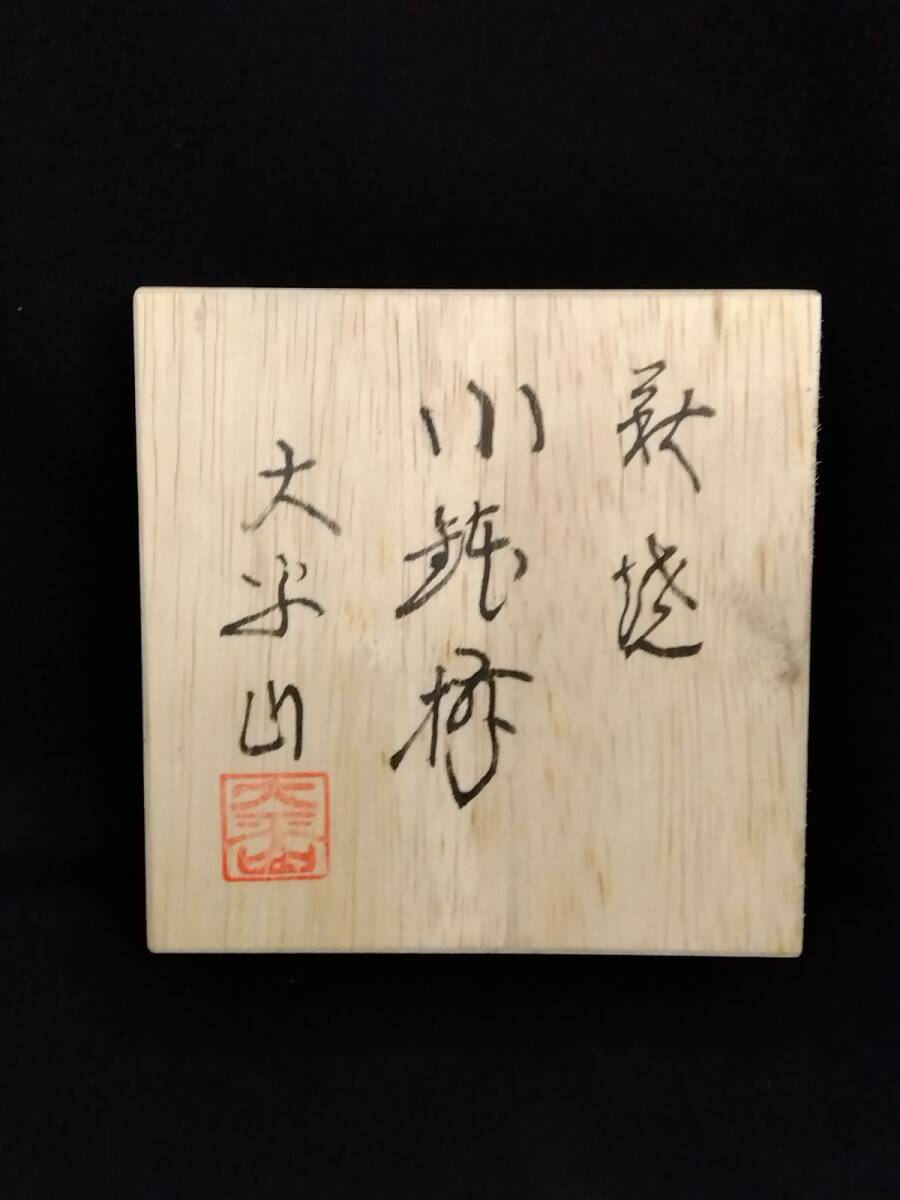 萩焼
小鉢揃
大平山
大平山